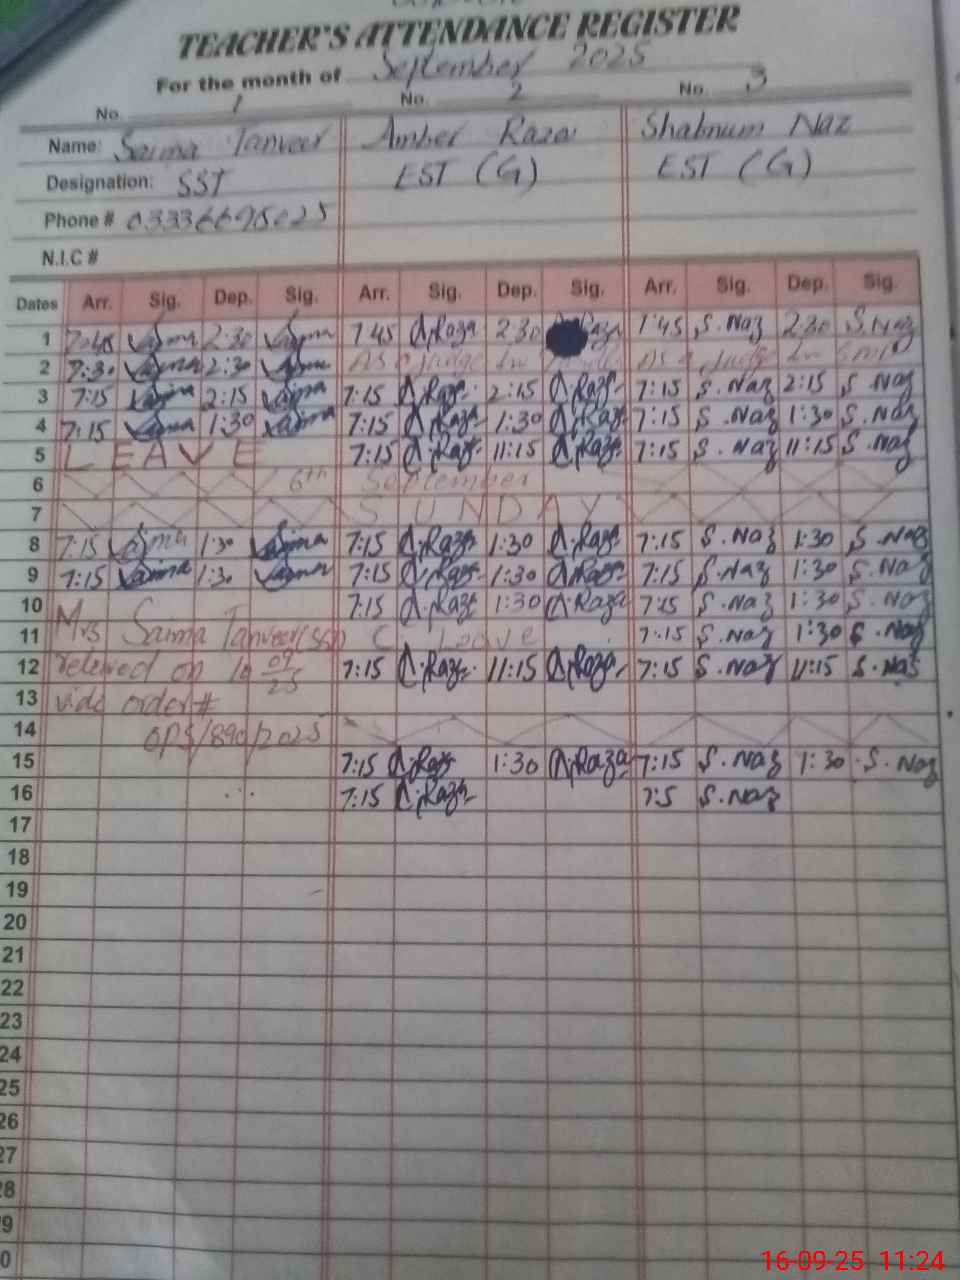 TEACHER'S ATTENDANCE REGISTER
For the month of September 2025
No. 1 No. 2 No. 3
Name: Saima Tanveer Amber Raza Shabnum Naz
Designation: SST EST (G) EST (G)
Phone #
N.I.C #
Dates Arr. Sig. Dep. Sig. Arr. Sig. Dep. Sig. Arr. Sig. Dep. Sig.
1 7:45 Saima 2:30 Saima 7 45 A.Raza 2:30 Raza 7:45 S.Naz 2:30 S.Naz
2 7:30 Saima 2:30 Saima As a judge in As a judge in
3 7:15 Saima 2:15 Saima 7:15 A.Raza 2:15 A.Raza 7:15 S.Naz 2:15 S.Naz
4 7:15 Saima 1:30 Saima 7:15 A.Raza 1:30 A.Raza 7:15 S.Naz 1:30 S.Naz
5 LEAVE 7:15 A.Raza 11:15 A.Raza 7:15 S.Naz 11:15 S.Naz
6 6th September
7 SUNDAY
8 7:15 Saima 1:30 Saima 7:15 A.Raza 1:30 A.Raza 7:15 S.Naz 1:30 S.Naz
9 7:15 Saima 1:30 Saima 7:15 A.Raza 1:30 A.Raza 7:15 S.Naz 1:30 S.Naz
10 7:15 A.Raza 1:30 A.Raza 7:15 S.Naz 1:30 S.Naz
11 Mrs Saima Tanveer C. Leave 7:15 S.Naz 1:30 S.Naz
12 relieved on 10 09/25 7:15 A.Raza 11:15 A.Raza 7:15 S.Naz 11:15 S.Naz
13 vide order #
14 OPS/890/2025
15 7:15 A.Raza 1:30 A.Raza 7:15 S.Naz 1:30 S.Naz
16 7:15 A.Raza 7:5 S.Naz
17
18
19
20
21
22
23
24
25
26
27
28
9
0
16-09-25 11:24